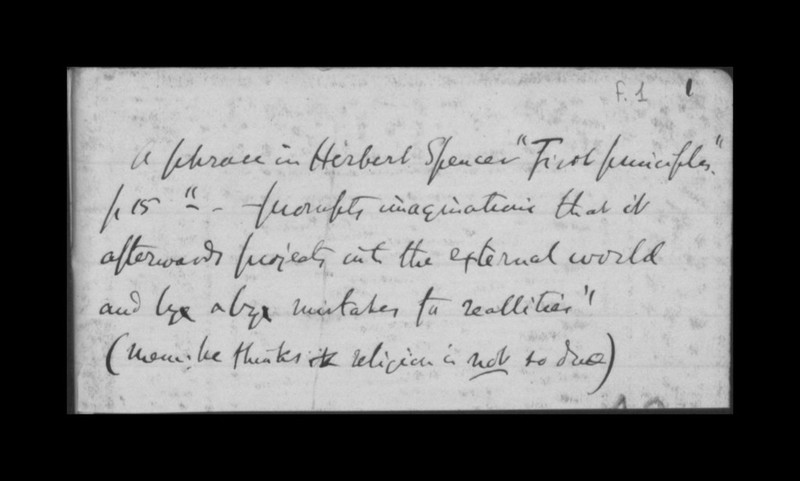 F. 1 1
A phrase in Herbert Spencer "First principles".
p 15 " - - - prompts imaginations that it
afterwards projects into the external world
and by & by mistakes for reallities"
(mem: he thinks it religion is not so due)